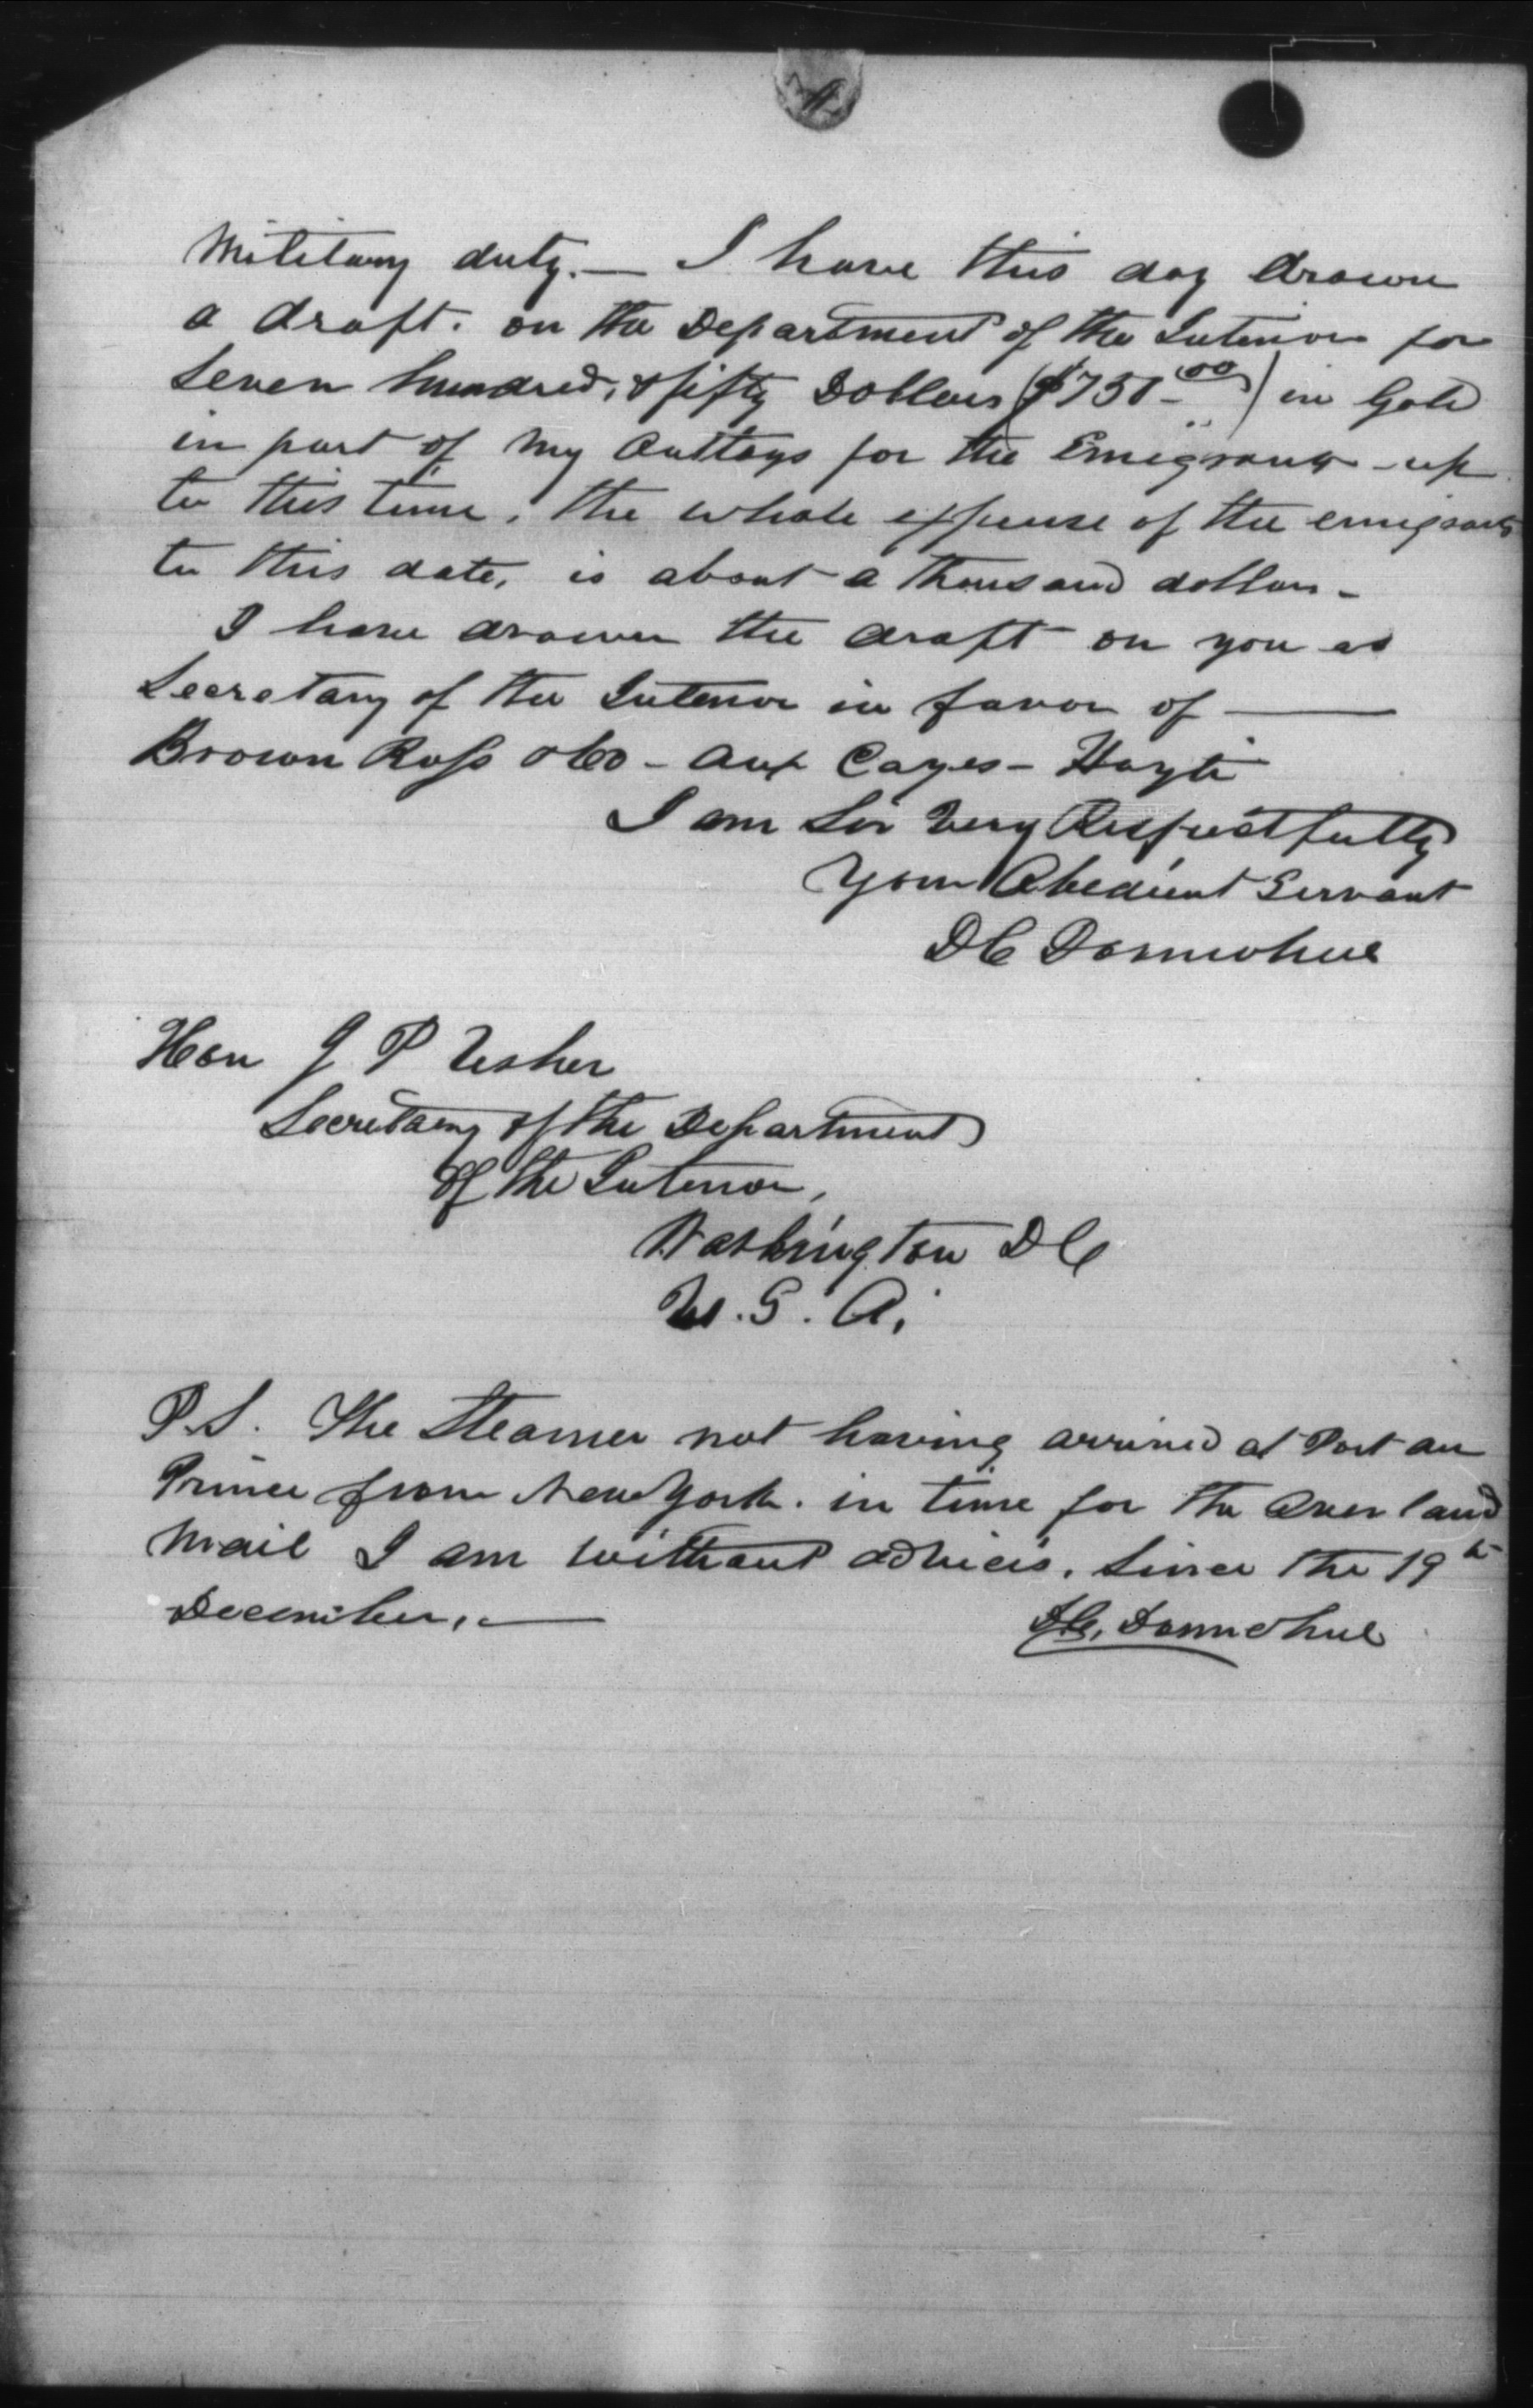 Military duty. — I have this day drawn
a draft. on the Department of the Interior for
Seven hundred, & fifty Dollars ($750-00) in Gold
in part of my Outlays for the Emigrants - up
to this time, the whole expense of the emigrants
to this date, is about a thousand dollars -
I have drawn the draft on you as
Secretary of the Interior in favor of —
Brown Ross & Co - Aux Cayes - Hayti
I am Sir Very Respectfully
Your Obedient Servant
D C Donnohue
Hon J P Usher
Secretary of the Department
Of the Interior,
Washington D C
U. S. A.
P.S. The Steamer not having arrived at Port au
Prince from New York. in time for the Over land
Mail I am without advices, Since the 19th
December, —
D.C. Donnohue